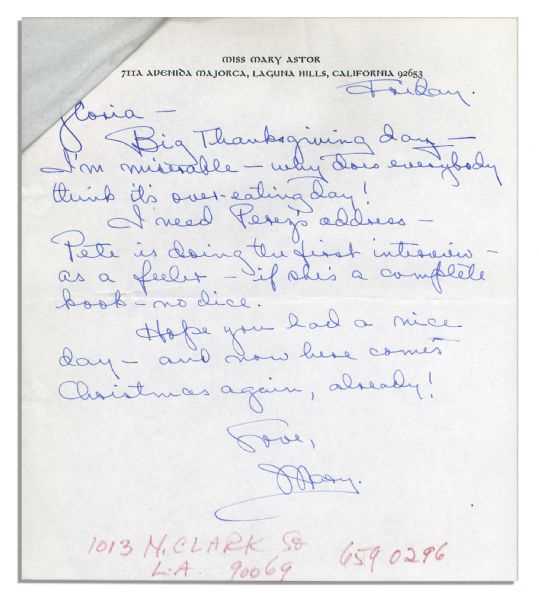 MISS MARY ASTOR
711A AVENIDA MAJORCA, LAGUNA HILLS, CALIFORNIA 92653
Friday.
Gloria —
Big Thanksgiving day —
I'm miserable — why does everybody
think it's over-eating day!
I need Perez's address —
Pete is doing the first interview —
as a feeler — if she's a complete
kook — no dice.
Hope you had a nice
day — and now here comes
Christmas again, already!
Love,
Mary.
1013 N. CLARK St 659 0296
L.A. 90069